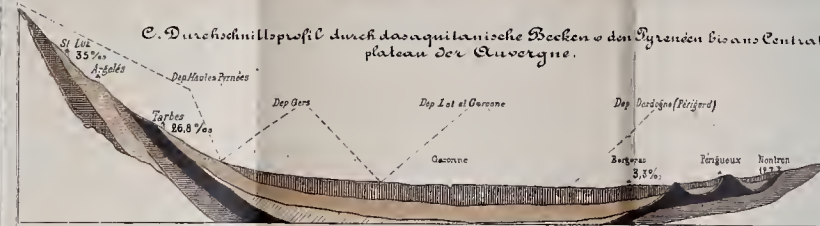 C. Durchschnittsprofil durch das aquitanische Becken v den Pyrenëen bis ans Central
plateau der Auvergne.
St Luz
35‰
Argelés
Dep Hautes Pyrnées
Tarbes
26,8‰
Dep Gers
Dep Lot et Garonne
Dep Dordogne (Périgord)
Garonne
Bergerac
3,3‰
Périgueux
Nontron